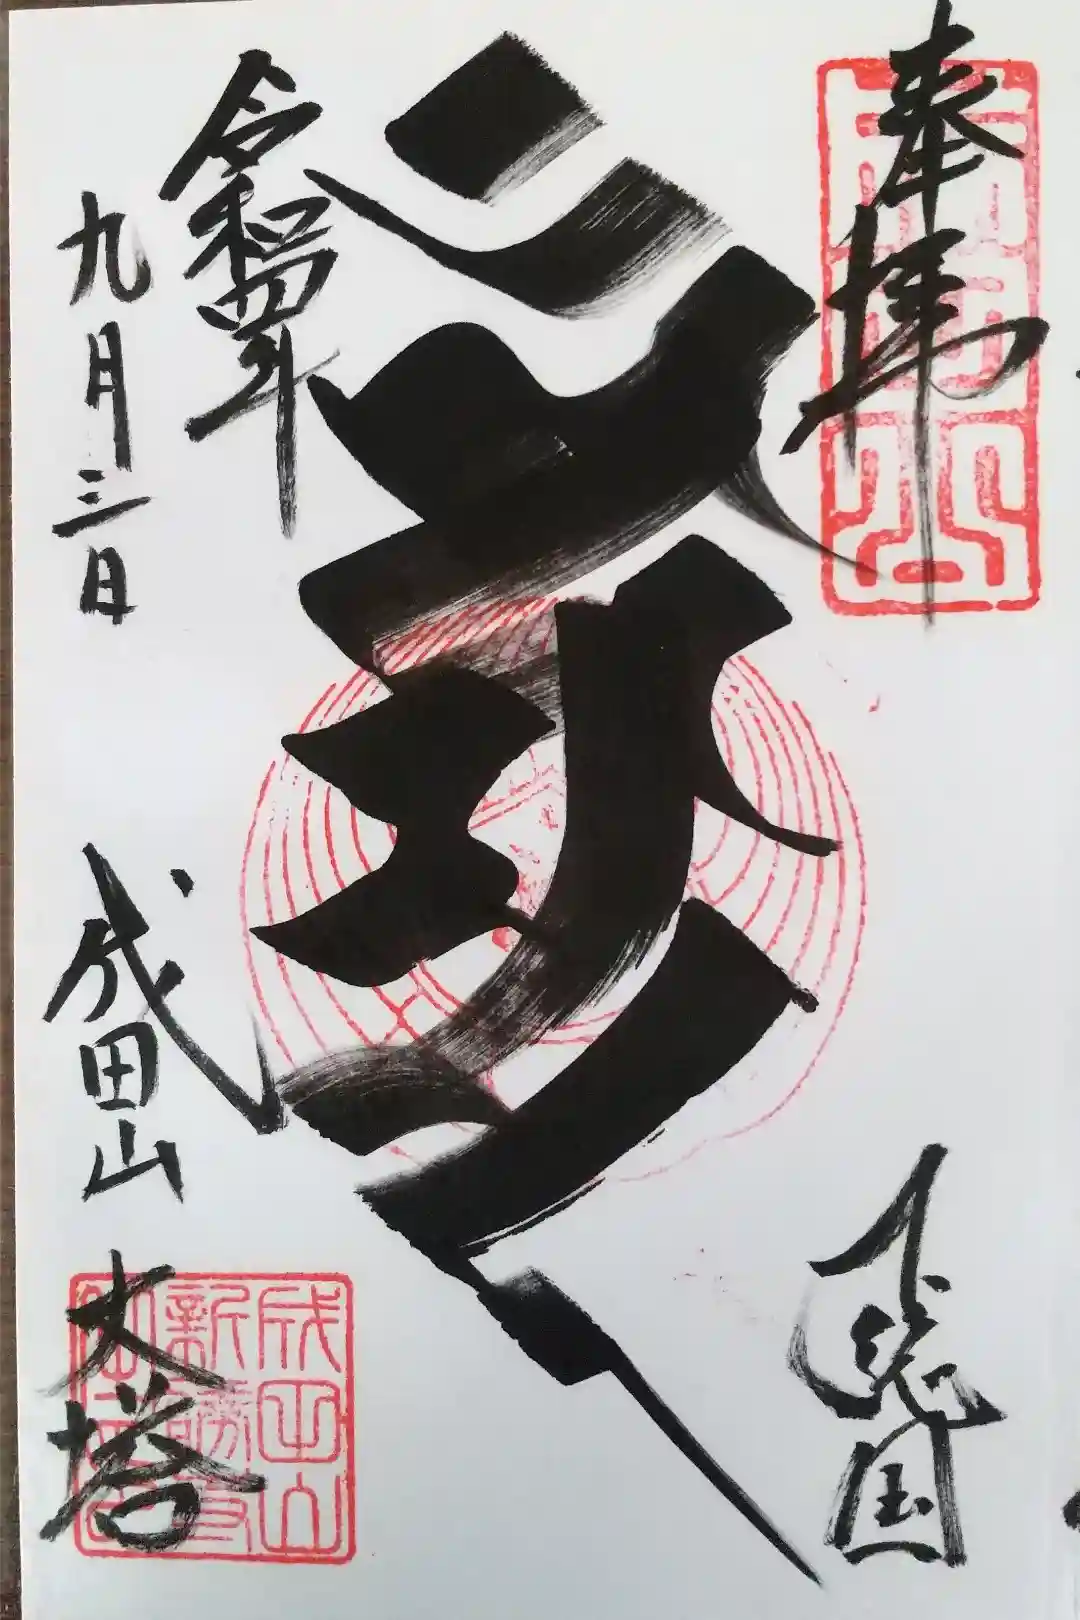 奉拝
下総国
令和四年
九月三日
成田山
大塔
成田山
新勝寺